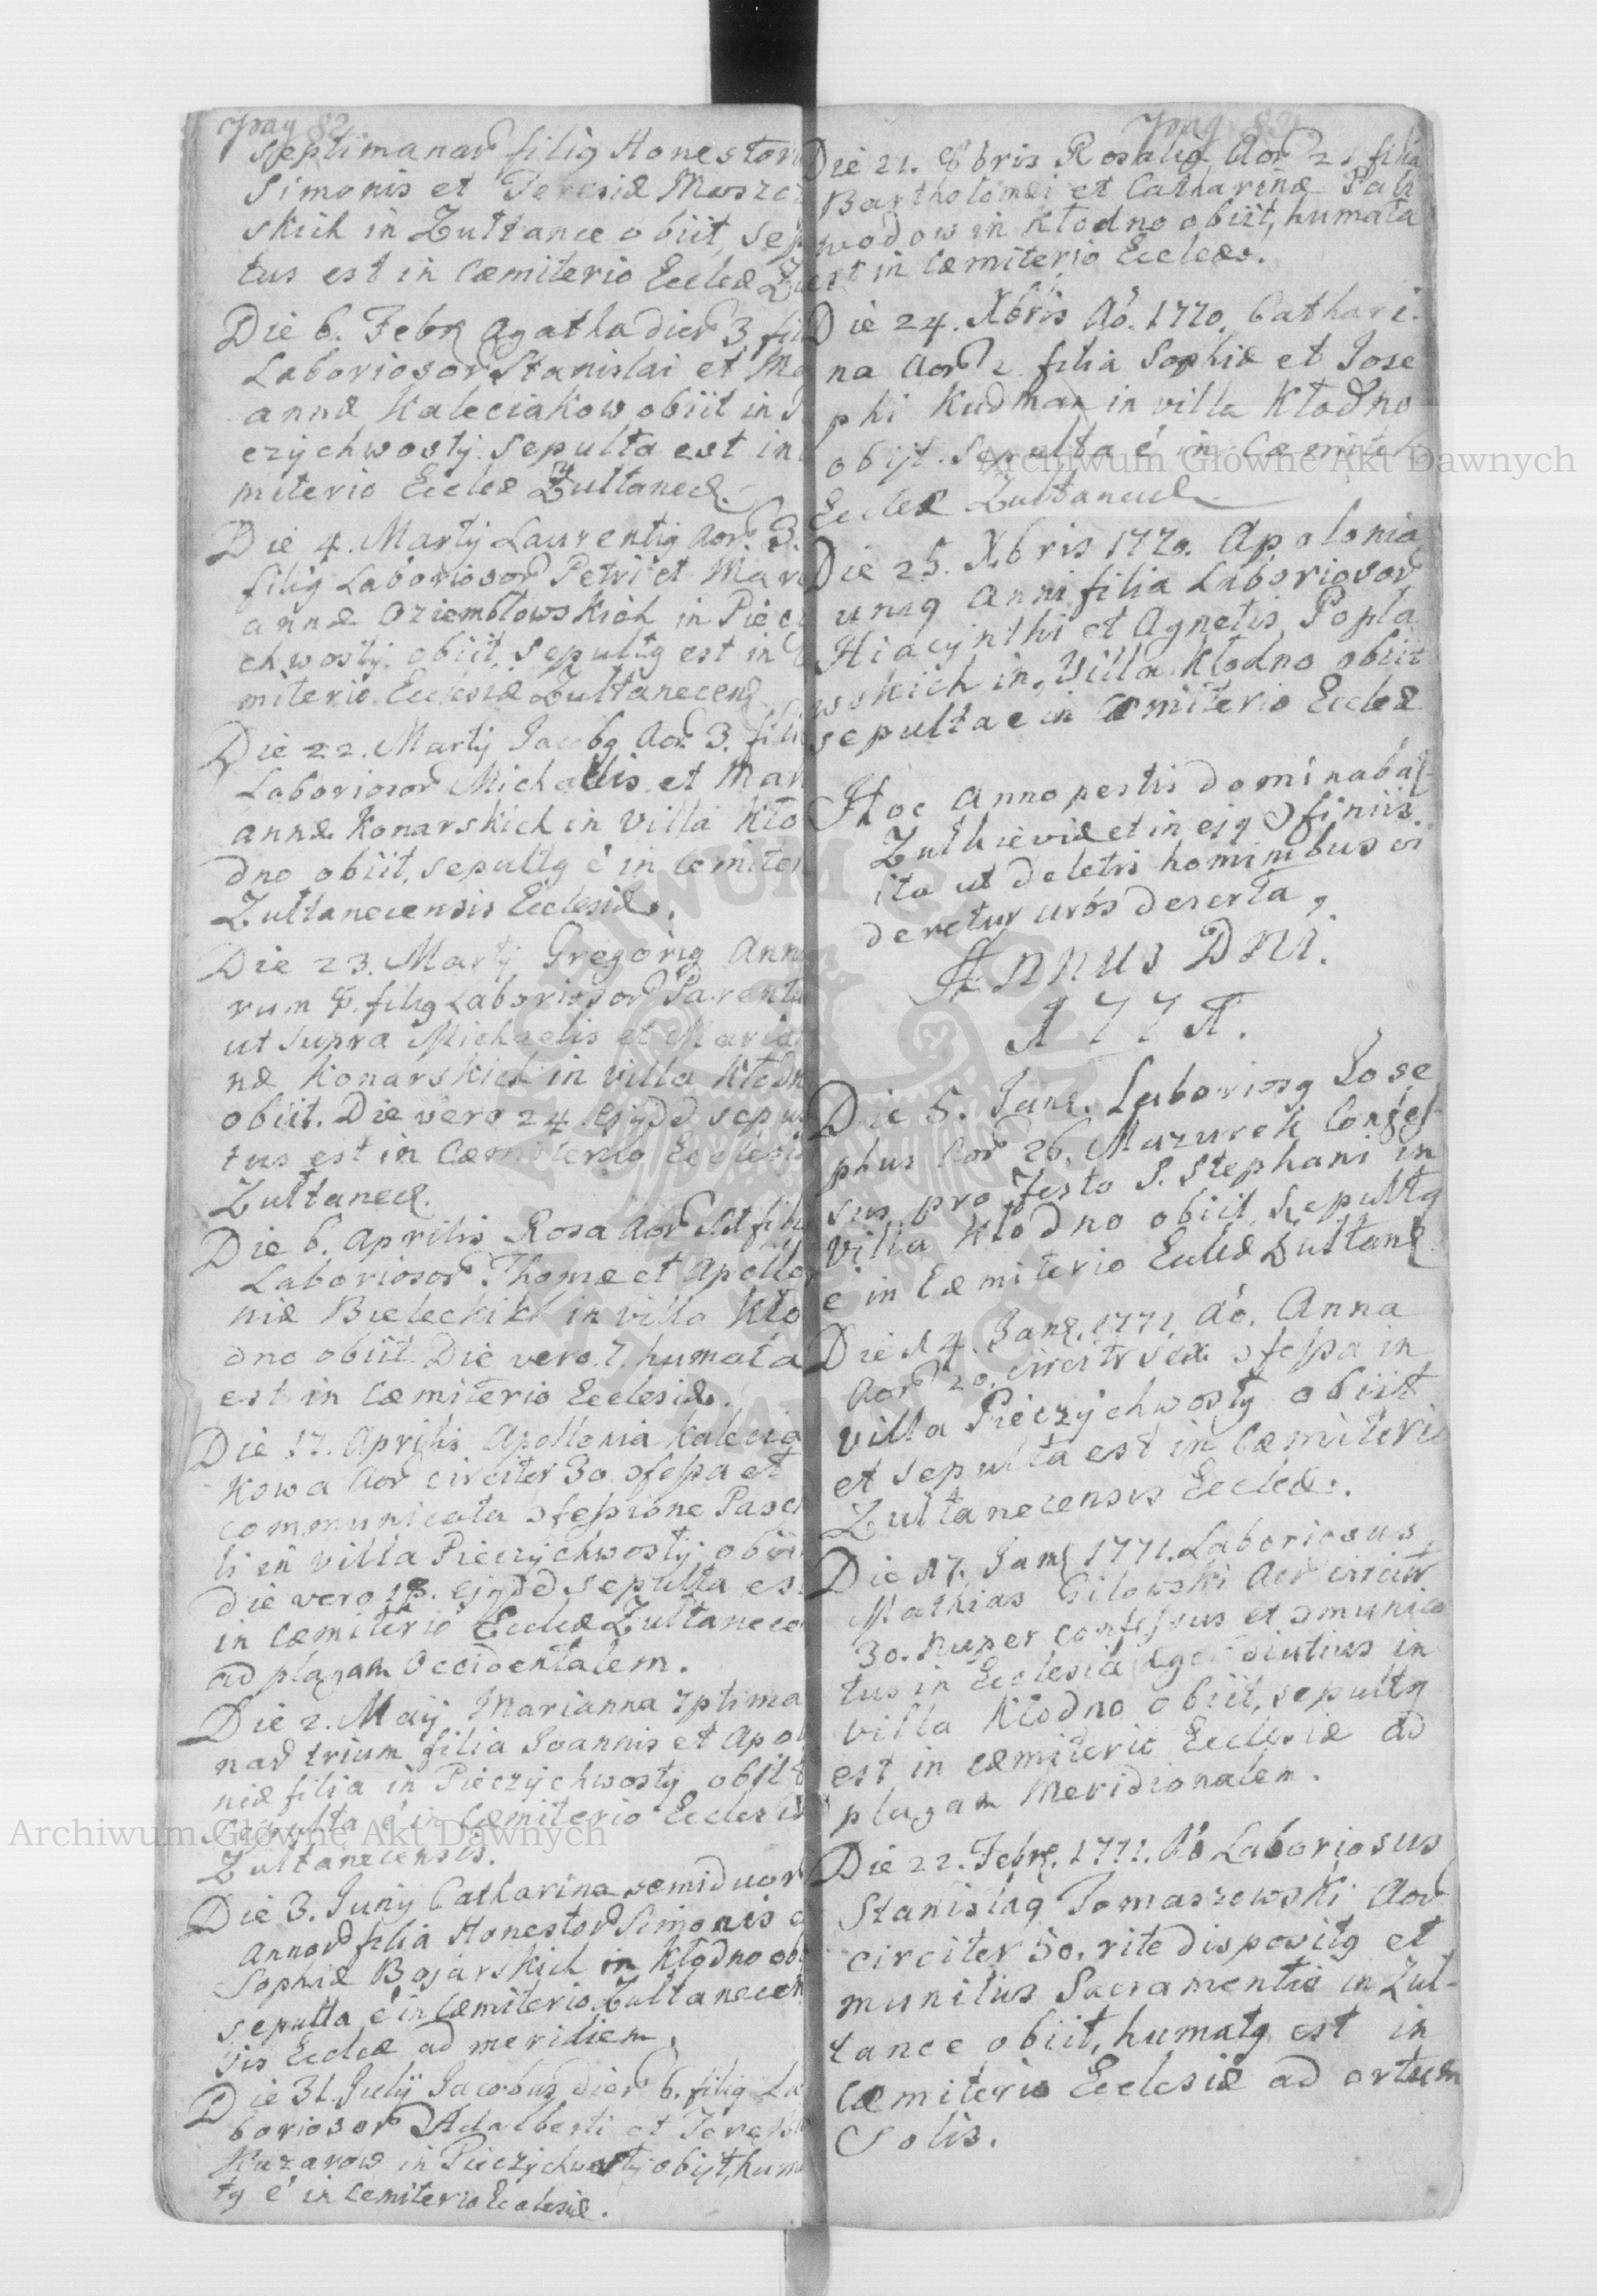 pag 82
septimanar filiq Honestor
Simonis et Teresiæ Muszcz
skich in Zułtance obiit, sep
tus est in Cæmiterio Eccleæ Zu
Die 6. Febr Agatha dier 3 fili
Laboriosor Stanislai et Ma
annæ Kaleciakow obiit in
czychwosty. sepulta est in
miterio Eccleæ Zułtanec.
Die 4. Martij Laurentiq Aor. 3.
filiq Laboriosor Petri et Mari
annæ Oziembłowskich in Piecz
chwosty. obiit, sepultq est in
miterio Ecclesiæ Zułtanecen
Die 22. Martij Jacobq Aor. 3. fili
Laboriosor Michaelis et Mari
annæ Konarskich in villa Kło
dno obiit, sepultq é in Cæmiter
Zułtanecensis Ecclesiæ.
Die 23. Martij Gregoriq Anno
rum 8. filiq Laboriosor Parentu
ut supra Michaelis et Maria
næ Konarskich in villa Kłodn
obiit. Die vero 24 ejqdd sepul
tus est in Cæmiterio Ecclesiæ
Zułtanec.
Die 6. Aprilis Rosa Aor filia
Laboriosor Thomæ et Apollo
niæ Bieleckich in villa Kło
dno obiit. Die vero 7. humata
est in Cæmiterio Ecclesiæ.
Die 17. Aprilis Apollonia Kalecia
kowa Aor circiter 30 ɔfessa et
communicata ɔfessione Pasch
li in villa Pieczychwosty obiit
die vero 18. ejqdd sepulta es
in Cæmiterio Eccleæ Zułtanecen
ad plagam Occidentalem.
Die 2. Maij Marianna 7ptima
nar trium filia Joannis et Apol
niæ filia in Pieczychwosty obijt
Sepulta é in Cæmiterio Ecclesiæ
Zułtanecensis.
Die 3. Junij Catharina semiduor
annor filia Honestor Simonis e
Sophiæ Bojarskich in Kłodno obi
sepulta é in Cæmiterio Zułtanecen
sis Eccleæ ad meridiem.
Die 31. Julij Jacobus dier 6. filiq La
boriosor Adalberti et Teresi
Kuzarow in Pieczychwosty obijt, huma
tq é in Cæmiterio Ecclesiæ.
pag 83
Die 21. 8bris Rosalia Aor 2 filia
Bartholomæi et Catharinæ Pali
wodow in Kłodno obiit, humata
est in Cæmiterio Eccleæ.
Die 24. Xbris Aó. 1770. Cathari
na Aor 2 filia Sophiæ et Jose
phi Kudman in villa Kłodno
obijt. Sepulta é in Cæmiter
Eccleæ Zułtanec
Die 25. Xbris 1770. Apolonia
uniq Anni filia Laboriosor
Hiacynthi et Agnetis Popła
wskich in Villa Kłodno obiit
sepulta e in Cæmiterio Eccleæ
Hoc Anno pestis dominabat
Zulkieviæ et in ejq ɔfiniis.
ita ut deletis hominibus vi
deretur urbs deserta,
Annus Dni.
1771.
Die 5. Jan. Laboriosq Jose
phus Aor 26. Mazurek Confes
sus pro Festo S. Stephani in
villa Kłodno obiit, sepultq
é in Cæmiterio Eccleæ Zułtan
Die 14. Jan. 1771. Aó. Anna
Aor 20. circitr ɔfessa in
villa Pieczychwosty obiit
et sepulta est in Cæmiterio
Zułtanecensis Eccleæ.
Die 17. Jan 1771. Laboriosus
Mathias Giłowski Aor circitr
30. nuper confessus et ɔmunica
tus in Ecclesia diutius in
villa Kłodno obiit, sepultq
est in Cæmiterio Ecclesiæ ad
plagam Meridionalem.
Die 22. Febr. 1771. Aó Laboriosus
Stanislaq Tomaszewski Aor
circiter 50. rite dispositq et
munitus Sacramentis in Zuł-
tance obiit, humatq est in
Cæmiterio Ecclesiæ ad ortum
Solis.
Archiwum Główne Akt Dawnych
Archiwum Główne Akt Dawnych